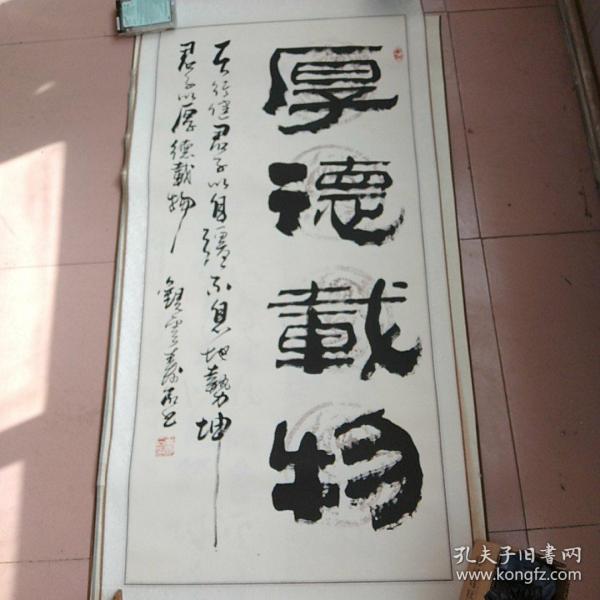 厚德載物
天行健君子以自彊不息地勢坤
君子以厚德載物
孔夫子旧书网
www.kongfz.com